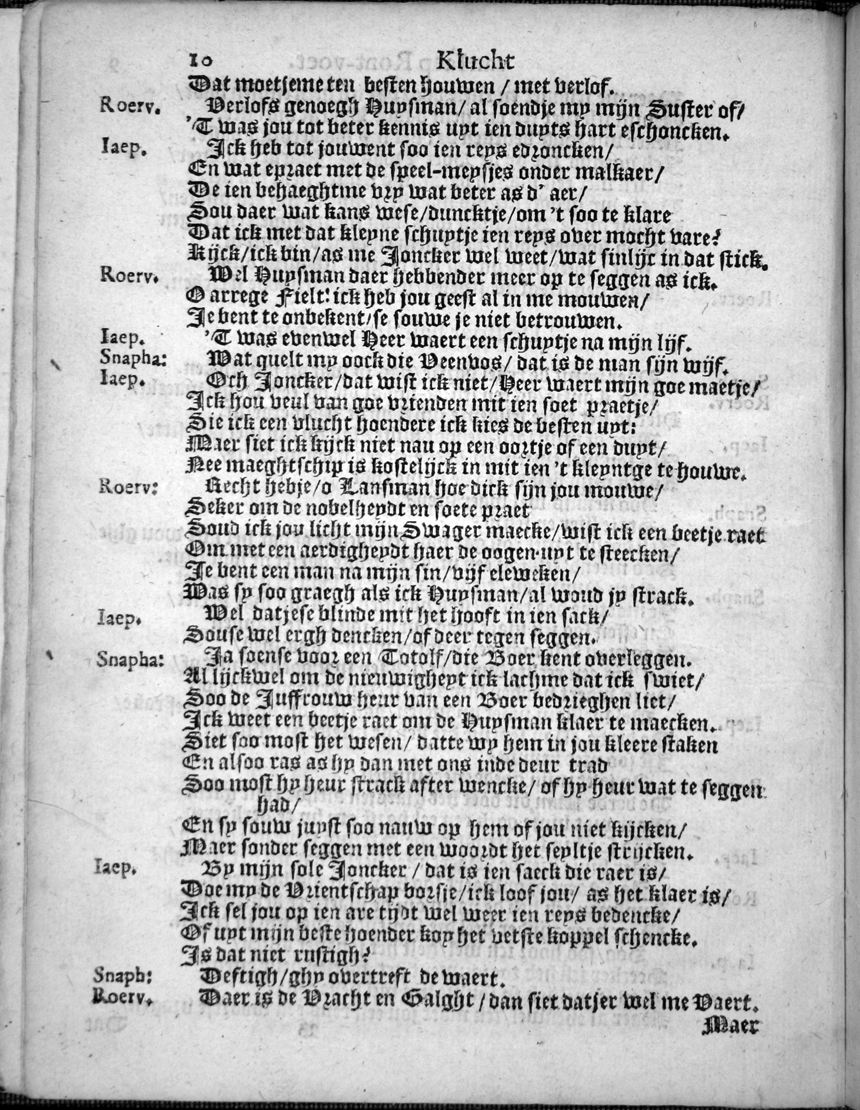 10 Klucht
Dat moetjeme ten besten houwen / met verlof.
Roerv. Verlofs genoegh Huysman/ al soendje my mijn Suster of/
'T was jou tot beter kennis uyt ien duyts hart eschoncken.
Iaep. Ick heb tot jouwent soo ien reys edroncken/
En wat epraet met de speel-meysjes onder malkaer/
De ien behaeghtme vry wat beter as d' aer/
Sou daer wat kans wese/duncktje/om 't soo te klare
Dat ick met dat kleyne schuytje ien reys over mocht vare?
Kijck/ick bin/as me Joncker wel weet/wat sinlijc in dat stick.
Roerv. Wel Huysman daer hebbender meer op te seggen as ick.
O arrege Fielt! ick heb jou geest al in me mouwen/
Je bent te onbekent/se souwe je niet betrouwen.
Iaep. 'T was evenwel Heer waert een schuytje na mijn lijf.
Snapha: Wat quelt my oock die Veenvos/ dat is de man sijn wijf.
Iaep. Och Joncker/dat wist ick niet/Heer waert mijn goe maetje/
Ick hou veul van goe vrienden mit ien soet praetje/
Sie ick een vlucht hoendere ick kies de besten uyt:
Maer siet ick kijck niet nau op een oortje of een duyt/
Nee maeghtschip is kostelijck in mit ien 't kleyntge te houwe.
Roerv: Recht hebje/o Lansman hoe dick sijn jou mouwe/
Seker om de nobelheydt en soete praet
Soud ick jou licht mijn Swager maecke/wist ick een beetje raet
Om met een aerdigheydt haer de oogen uyt te steecken/
Je bent een man na mijn sin/vijf eleweken/
Was sy soo graegh als ick Huysman/al woud jy strack.
Iaep. Wel datjese blinde mit het hooft in ien sack/
Souse wel ergh dencken/of deer tegen seggen.
Snapha: Ja soense voor een Totolf/die Boer kent overleggen.
Al lijckwel om de nieuwigheyt ick lachme dat ick swiet/
Soo de Juffrouw heur van een Boer bedrieghen liet/
Ick weet een beetje raet om de Huysman klaer te maecken.
Siet soo most het wesen/ datte wy hem in jou kleere staken
En alsoo ras as hy dan met ons inde deur trad
Soo most hy heur strack after wencke/ of hy heur wat te seggen
had/
En sy souw juyst soo nauw op hem of jou niet kijcken/
Maer sonder seggen met een woordt het seyltje strijcken.
Iaep. By mijn sole Joncker / dat is ien saeck die raer is/
Doe my de Vrientschap borsje/ick loof jou/ as het klaer is/
Ick sel jou op ien are tijdt wel weer ien reys bedencke/
Of uyt mijn beste hoender koy het vetste koppel schencke.
Is dat niet rustigh?
Snaph: Deftigh/ghy overtreft de waert.
Roerv. Daer is de Vracht en Galght / dan siet datjer wel me Vaert.
Maer